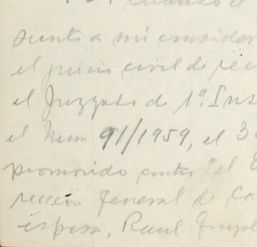 siento a mi consider
el juicio civil de rei
el Juzgado de 1ª. Ins
el Num 91/1959, el 3
promovido contra "el E
rección general de Ca
esposa, Raul